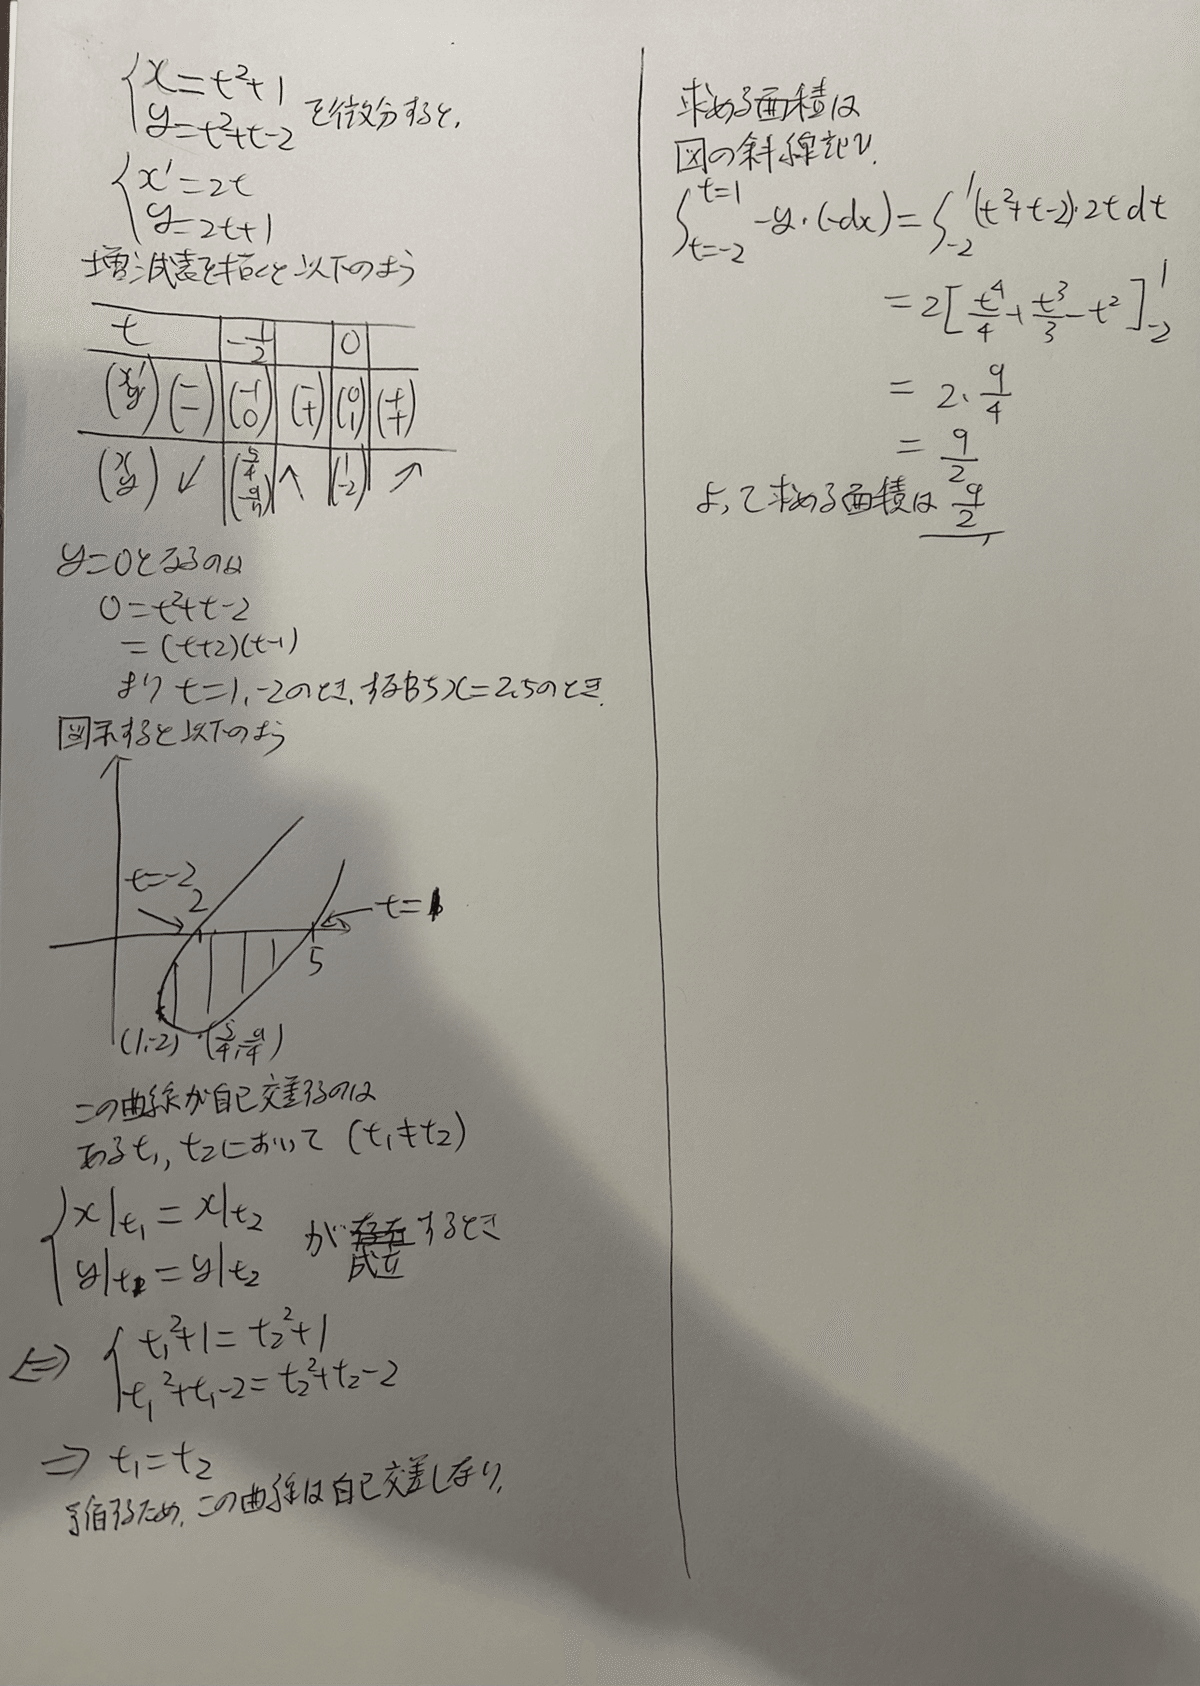 x=t²+1
y=t²+t-2 を微分すると,
x'=2t
y=2t+1
増減表を描くと以下のよう
t -1/2 0
(x' y') (- -) (-1 0) (- +) (0 1) (+ +)
(x y) ↙ (5/4 -9/4) ↖ (1 -2) ↗
y=0となるのは
0=t²+t-2
=(t+2)(t-1)
より t=1,-2のとき,すなわちx=2,5のとき.
図示すると以下のよう
t=-2
2
t=1
5
(1,-2) (5/4,-9/4)
この曲線が自己交差するのは
あるt₁,t₂において (t₁≠t₂)
x|t₁=x|t₂
y|t₁=y|t₂ が成立するとき
⇔ t₁²+1=t₂²+1
t₁²+t₁-2=t₂²+t₂-2
⇒ t₁=t₂
矛盾するため,この曲線は自己交差しない,
求める面積は
図の斜線部で,
∫_{t=-2}^{t=1} -y・(-dx)=∫_{-2}^{1}(t²+t-2)・2t dt
=2[t⁴/4+t³/3-t²]_{-2}^{1}
=2・9/4
=9/2
よって求める面積は 9/2